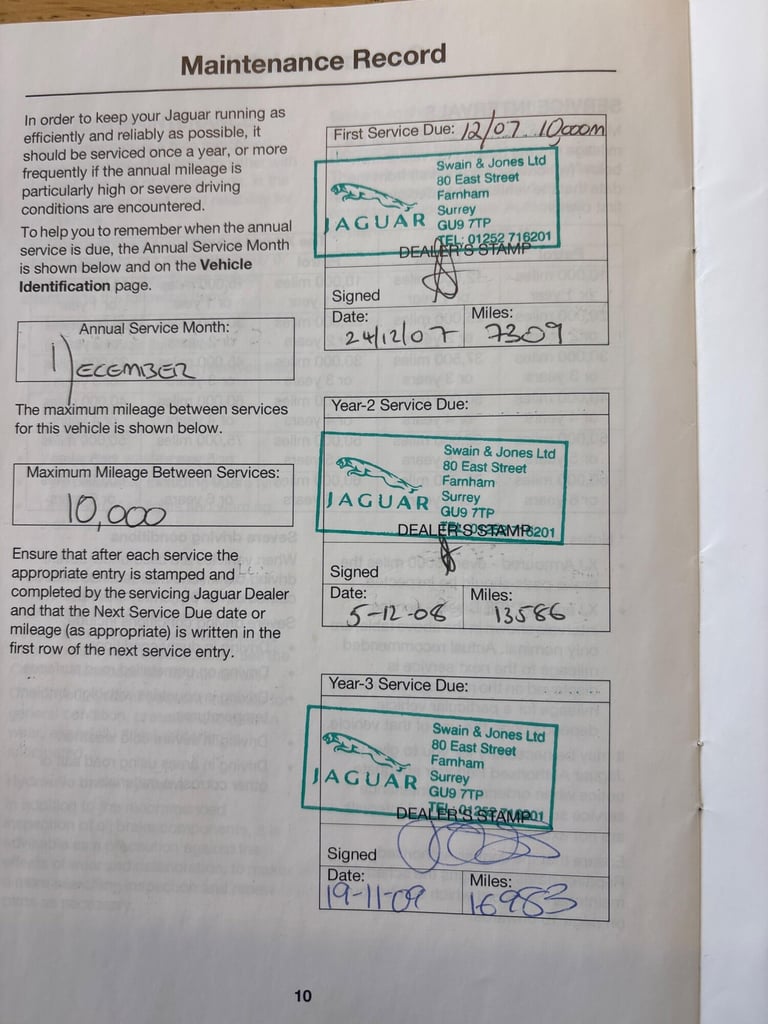 Maintenance Record
In order to keep your Jaguar running as
efficiently and reliably as possible, it
should be serviced once a year, or more
frequently if the annual mileage is
particularly high or severe driving
conditions are encountered.
To help you to remember when the annual
service is due, the Annual Service Month
is shown below and on the Vehicle
Identification page.
Annual Service Month:
DECEMBER
The maximum mileage between services
for this vehicle is shown below.
Maximum Mileage Between Services:
10,000
Ensure that after each service the
appropriate entry is stamped and
completed by the servicing Jaguar Dealer
and that the Next Service Due date or
mileage (as appropriate) is written in the
first row of the next service entry.
First Service Due: 12/07 10,000m
JAGUAR
Swain & Jones Ltd
80 East Street
Farnham
Surrey
GU9 7TP
TEL: 01252 716201
DEALER'S STAMP
Signed
Date: 24/12/07
Miles: 7309
Year-2 Service Due:
JAGUAR
Swain & Jones Ltd
80 East Street
Farnham
Surrey
GU9 7TP
TEL: 01252 716201
DEALER'S STAMP
Signed
Date: 5-12-08
Miles: 13586
Year-3 Service Due:
JAGUAR
Swain & Jones Ltd
80 East Street
Farnham
Surrey
GU9 7TP
TEL: 01252 716201
DEALER'S STAMP
Signed
Date: 19-11-09
Miles: 16983
10